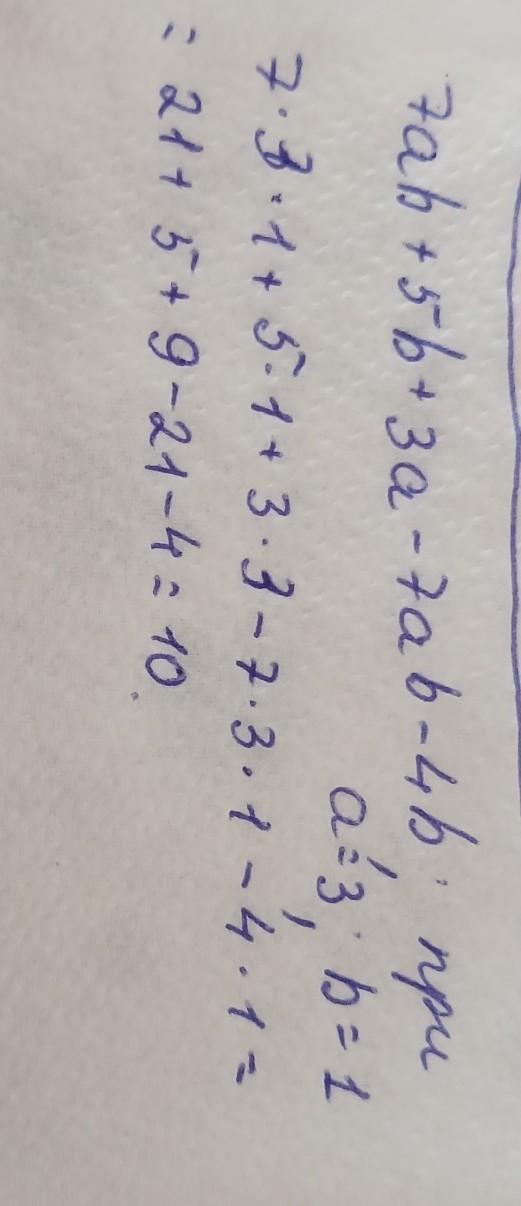 7ab + 5b + 3a - 7ab - 4b при
a = 3, b = 1
7 · 3 · 1 + 5 · 1 + 3 · 3 - 7 · 3 · 1 - 4 · 1 =
= 21 + 5 + 9 - 21 - 4 = 10.